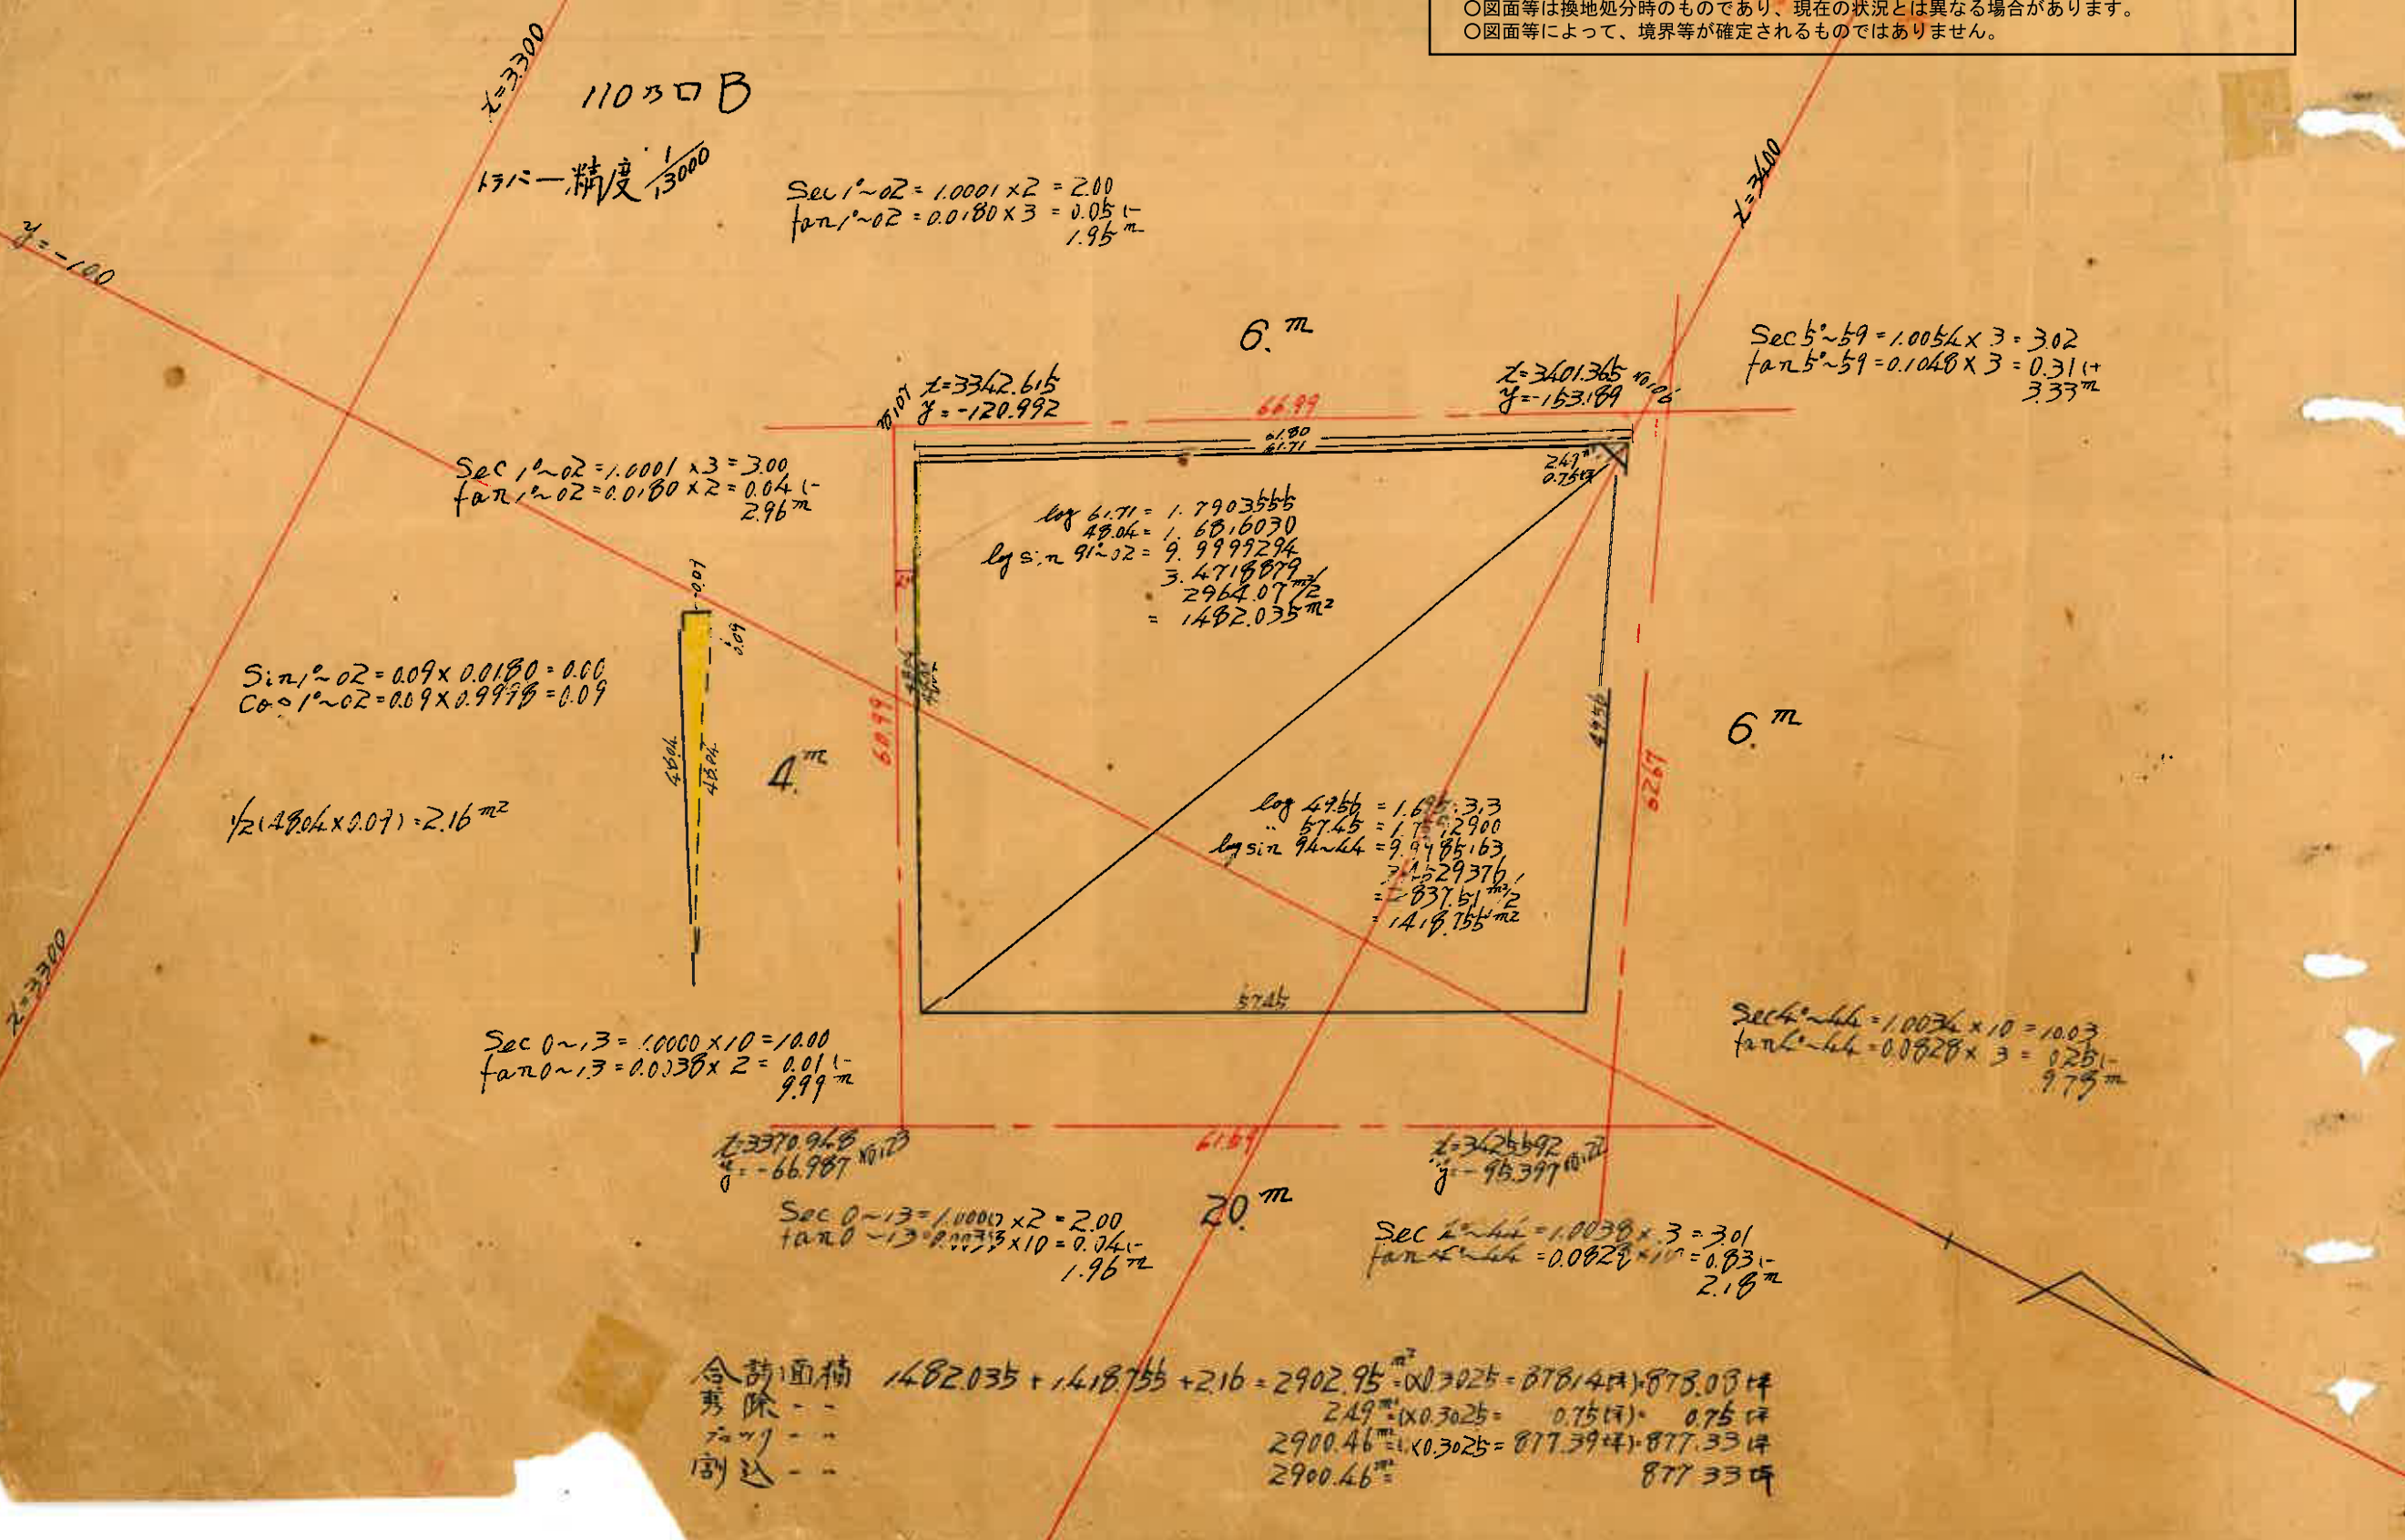 〇図面等は換地処分時のものであり、現在の状況とは異なる場合があります。
〇図面等によって、境界等が確定されるものではありません。
110ブロB
トラバー精度 1/3000
x=3300
x=3400
y=-100
Sec 1°~02 = 1.0001 ×2 = 2.00
tan 1°~02 = 0.0180 × 3 = 0.05 (-
1.95 m
6.m
Sec 5°~59 = 1.0054 × 3 = 3.02
tan 5°~59 = 0.1048 × 3 = 0.31 (+
3.33 m
x=3342.615
y=-120.992
x=3401.365
y=-153.189
66.99
61.80
61.71
2.49
0.75坪
Sec 1°~02 = 1.0001 ×3 = 3.00
tan 1°~02 = 0.0180 × 2 = 0.04 (-
2.96 m
log 61.71 = 1.7903555
48.04 = 1.6816030
log sin 91~02 = 9.9999294
3.4718879
2964.07 m²/2
= 1482.035 m²
0.07
0.09
Sin 1°~02 = 0.09 × 0.0180 = 0.00
Cos 1°~02 = 0.09 × 0.9998 = 0.09
48.04
48.04
60.99
4.m
49.56
62.67
6.m
1/2(48.04×0.09) = 2.16 m²
log 49.56 =
〃 57.45 =
log sin 94~44 = 9.9985163
= 2837.51 m²/2
= 1418.755 m²
57.45
Sec 0~13 = 1.0000 × 10 = 10.00
tan 0~13 = 0.0038 × 2 = 0.01 (-
9.99 m
Sec 4°~44 = 1.0034 × 10 = 10.03
tan 4°~44 = 0.0828 × 3 = 0.25 (-
9.78 m
x=3370.948
y=-66.987
61.59
x=3425.592
y=-95.397
20.m
Sec 0~13 = 1.0000 ×2 = 2.00
tan 0~13 = 0.0038 ×10 = 0.04 (-
1.96 m
Sec 4°~44 = 1.0038 × 3 = 3.01
tan 4°~44 = 0.0828 ×10 = 0.83 (-
2.18 m
合計面積 1482.035 + 1418.755 + 2.16 = 2902.95 m² (×0.3025 = 878.14坪) 878.08坪
剪除 - - 2.49 m² (×0.3025 = 0.75坪) 0.75坪
ブロック - - 2900.46 m² (×0.3025 = 877.39坪) 877.33坪
割込 - - 2900.46 m² 877.33坪